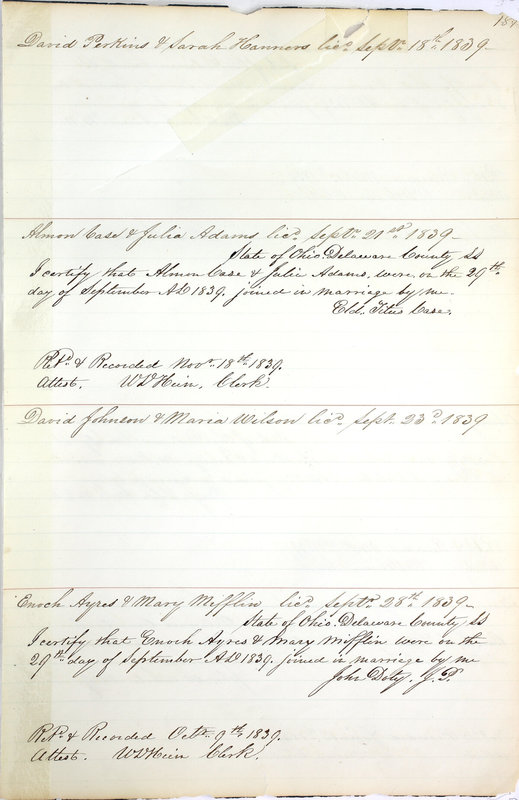 David Perkins & Sarah Hanners licd. Septr. 18th. 1839
Almon Case & Julia Adams licd. Septr. 21st. 1839
State of Ohio. Delaware County ss
I certify that Almon Case & Julia Adams, were, on the 29th.
day of September AD 1839. joined in marriage by me.
Eld. Titus Case.
Retd. & Recorded Novr. 18th. 1839.
Attest. Clerk.
David Johnson & Maria Wilson licd. Sept. 23d. 1839
Enoch Ayres & Mary Mifflin licd. Septr. 28th. 1839
State of Ohio. Delaware County ss
I certify that Enoch Ayres & Mary Mifflin were on the
29th. day of September AD 1839. joined in marriage by me
John Doty. J.P.
Retd. & Recorded Octr. 9th. 1839.
Attest. Clerk.